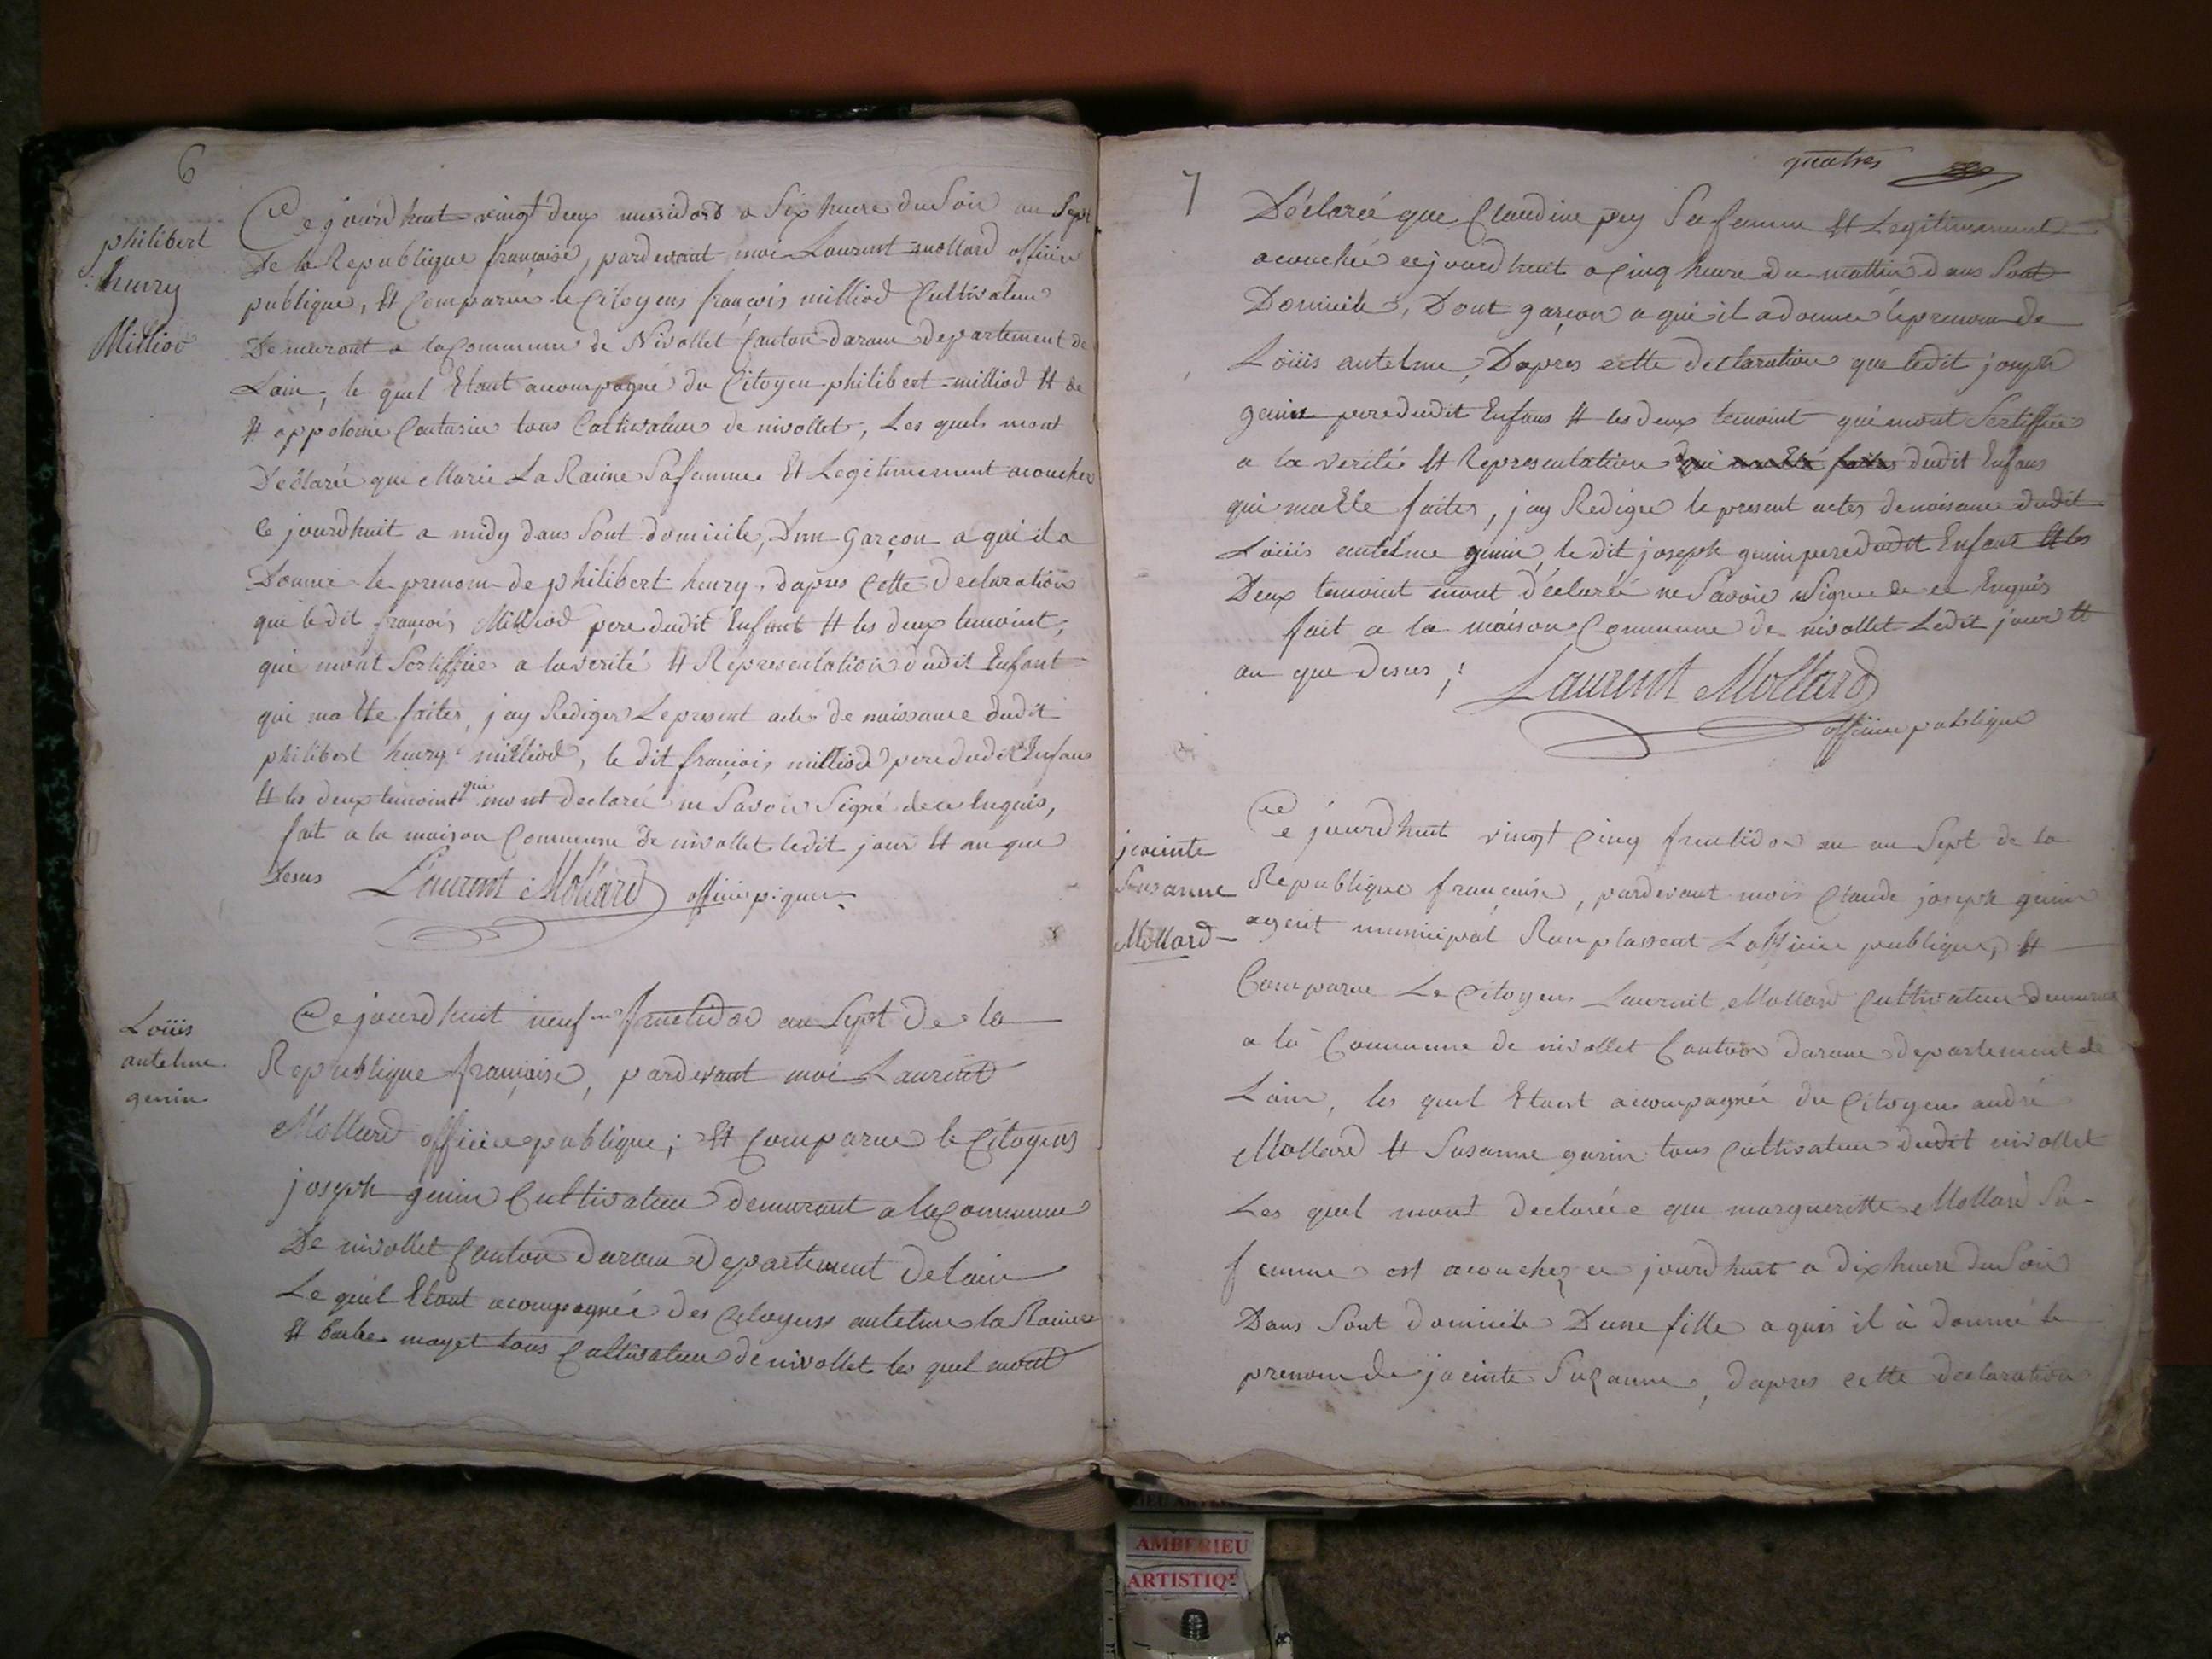 6
philibert
henry
Milliod
Ce jourdhuit vingt deux messidord a Six heure du Soir an Sept
De la Republique française, pardevant moi Laurent mollard officier
publique, Et Comparue le Citoyens françois milliod Cultivateur
Demurant a la Commune de Nivollet Canton daraue departement de
Lain, le quel Etant acompagné du Citoyen philibert milliod Et de
Et appolonie tous Cultivateur de nivollet, Les quels mont
Déclaréé que Marie La Raime Sa femme Et Legitimement acoucher
Ce jourdhuit a midy dans Sont domicile, Dun garçon a qui il a
Donné le prenom de philibert henry, dapres Cette declaration
que le dit françois Milliod pere dudit Enfant Et les deux temoint,
qui mont Sertiffiee a la verité Et Representation dudit Enfant
qui ma Ete faites, jay Rediger Le present actes de naissance dudit
philibert henry milliod, le dit françois milliod pere dudit Enfans
Et les deux temoint qui mont declaréé ne Savoir Signé de ce Enquis,
fait a la maison Commune de nivollet ledit jour Et an que
Desus Laurent Mollard officie p:que
Loüis
antelme
genin
Ce jourdhuit neuf fructidor an Sept De la
Republique françoise, pardevant moi Laurent
Mollard officie publique; Et Comparue le Citoyens
joseph genin Cultivateur demurant a la Commune
De nivollet Canton daraue Departement de Lain
Le quel Etant acompagnée des Citoyens antelme la Raime
Et barbe mayet tous Cultivateur de nivollet les quel mont
quatres
7
Déclareé que Claudine pey Sa femme Et Legitimement
acouchée cejourdhuit a Cinq heure du mattin dans Sont
Domicile, Dont garçon a qui il a donnee le prenom de
Loüis antelme, Dapres cette declaration que ledit joseph
genin pere dudit Enfans Et les deux temoint qui mont Sertiffiee
a la verité Et Representation dudit Enfans
qui ma Ete faites, jay Redigee le present actes de naisance dudit
Loüis antelme genin, le dit joseph genin pere dudit Enfans Et les
Deux temoint mont déclaréé ne Savoir Signee de ce Enquis
fait a la maison Commune de nivollet Ledit jour Et
an que Desus;
Laurent Mollard
officier publique
jacinte
Susanne
Mollard
Ce jourdhuit vingt Cinq fructidor an an Sept de la
Republique française, pardevant mois Claude joseph genin
agent municipal Remplassent Lofficie publique, Et
Comparue Le Citoyens Laurent Mollard Cultivateur demurant
a la Commune de nivollet Canton daraue departement de
Lain, les quel Etant acompagnée du Citoyen andré
Mollard Et Susanne garin tous Cultivateur dudit nivollet
Les quel mont declaréé que margueritte Mollard Sa
femme est acouchez ce jourdhuit a dix heure du Soir
Dans Sont domicile Dune fille a quis il à donné le
prenom de jacinte Suzanne, dapres cette declaration
AMBERIEU
ARTISTIQ